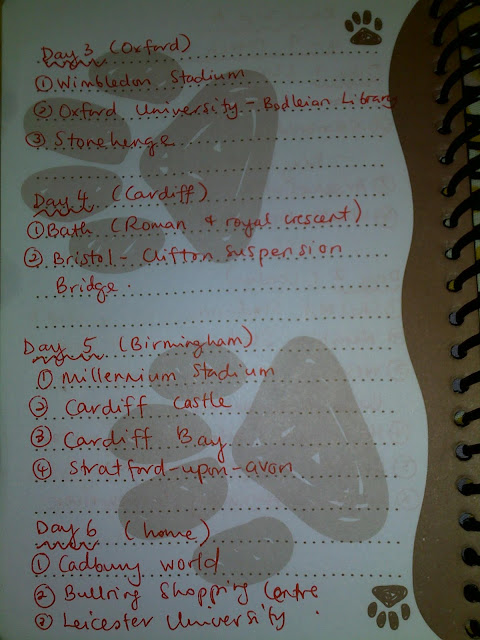 Day 3 (Oxford)
① Wimbledon Stadium
② Oxford University - Bodleian Library
③ Stonehenge
Day 4 (Cardiff)
① Bath (Roman & royal crescent)
② Bristol - Clifton suspension
Bridge.
Day 5 (Birmingham)
① Millennium Stadium
② Cardiff Castle
③ Cardiff Bay
④ Stratford-upon-avon
Day 6 (home)
① Cadbury world
② Bullring Shopping Centre
③ Leicester University.